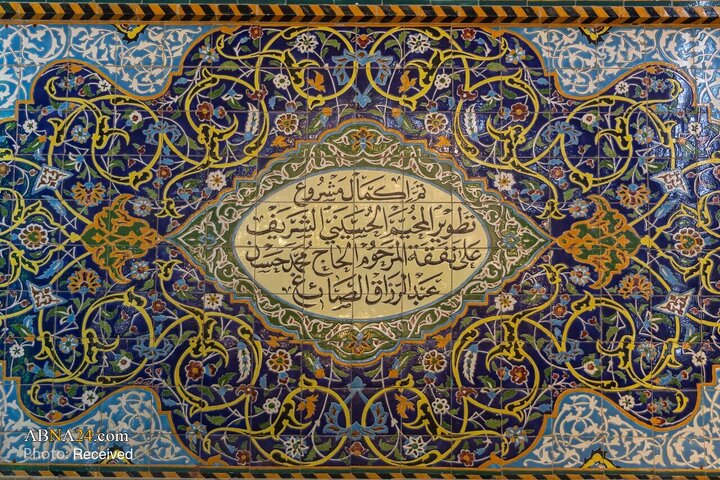 تم إكمال مشروع
تطوير المخيم الحسيني الشريف
على نفقة المرحوم الحاج محمد حسين
عبد الرزاق الصائغ
ABNA24.com
Photo: Received